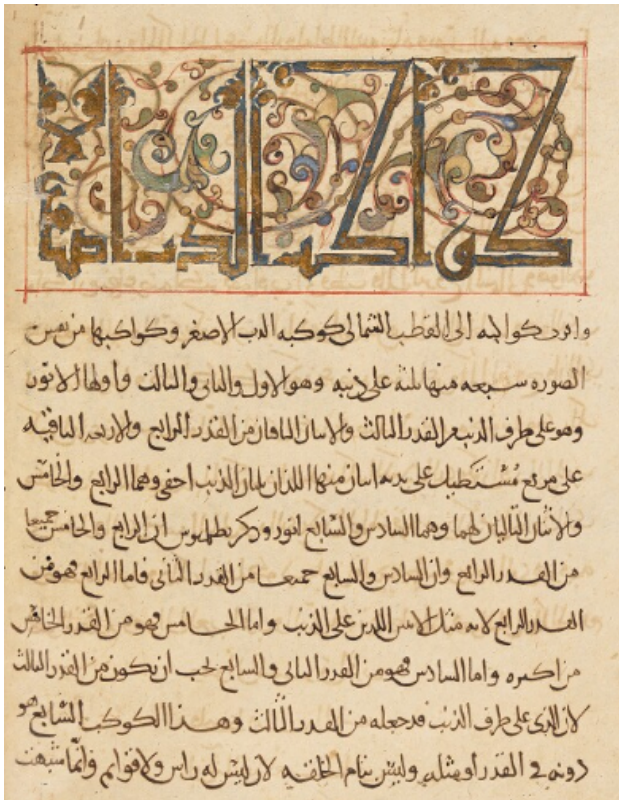 كواكب الدب الاصغر
واقرب كواكبه الى القطب الشمالى كوكبه الدب الاصغر وكواكبها من نفس
الصوره سبعه منها ثلثه على ذنبه وهو الاول والثانى والثالث واولها الانور
وهو على طرف الذنب من القدر الثالث والاثنان الباقيان من القدر الرابع والاربعه الباقيه
على مربع مستطيل على بدنه اثنان منها اللذان يليان الذنب اخفى وهما الرابع والخامس
والاثنان التاليان لهما وهما السادس والسابع انور وذكر بطلميوس ان الرابع والخامس جميعا
من القدر الرابع وان السادس والسابع جميعا من القدر الثانى فاما الرابع فهو من
القدر الرابع لانه مثل الاثنين اللذين على الذنب واما الخامس فهو من القدر الخامس
من اكبره واما السادس فهو من القدر الثانى والسابع يجب ان يكون من القدر الثالث
لان الذى على طرف الذنب قد جعله من القدر الثالث وهذا الكوكب السابع هو
دونه فى القدر او مثله وليس بتام الخلقه لان ليس له راس ولا قوائم وانما شبهت